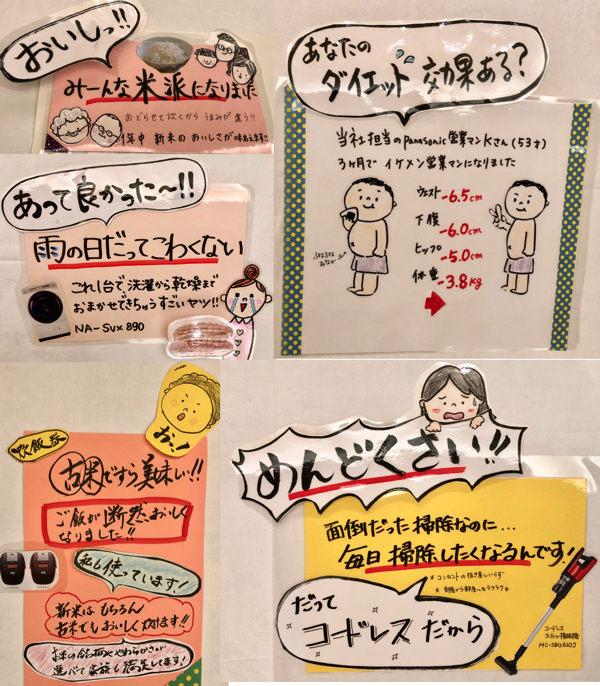 おいしっ!!
みーんな米派になりました
おどらせて炊くから うまみが違う!!
1年中 新米のおいしさが味わえます!!
あなたの
ダイエット 効果ある?
当社担当のPanasonic営業マンKさん(53才)
3ヶ月で イケメン営業マンになりました
ウエスト -6.5cm
下腹 -6.0cm
ヒップ -5.0cm
体重 -3.8kg
あって良かった〜!!
雨の日だってこわくない
これ1台で、洗濯から乾燥まで
おまかせできちゃうすごいヤツ!!
NA-SVX890
おっ!
炊飯器
古米ですら美味い!!
ご飯が断然、おいしく
なりました!!
私も使っています!
新米は もちろん
古米でもおいしく炊けます!!
お米の銘柄ややわらかさが
選べて家族も満足してます!
めんどくさい!!
面倒だった掃除なのに…
毎日掃除したくなるんです!
*コンセントの抜き差しいらず
*部屋から部屋へもラクラク
だって
コードレスだから
コードレス
スティック掃除機
MC-SBU620J